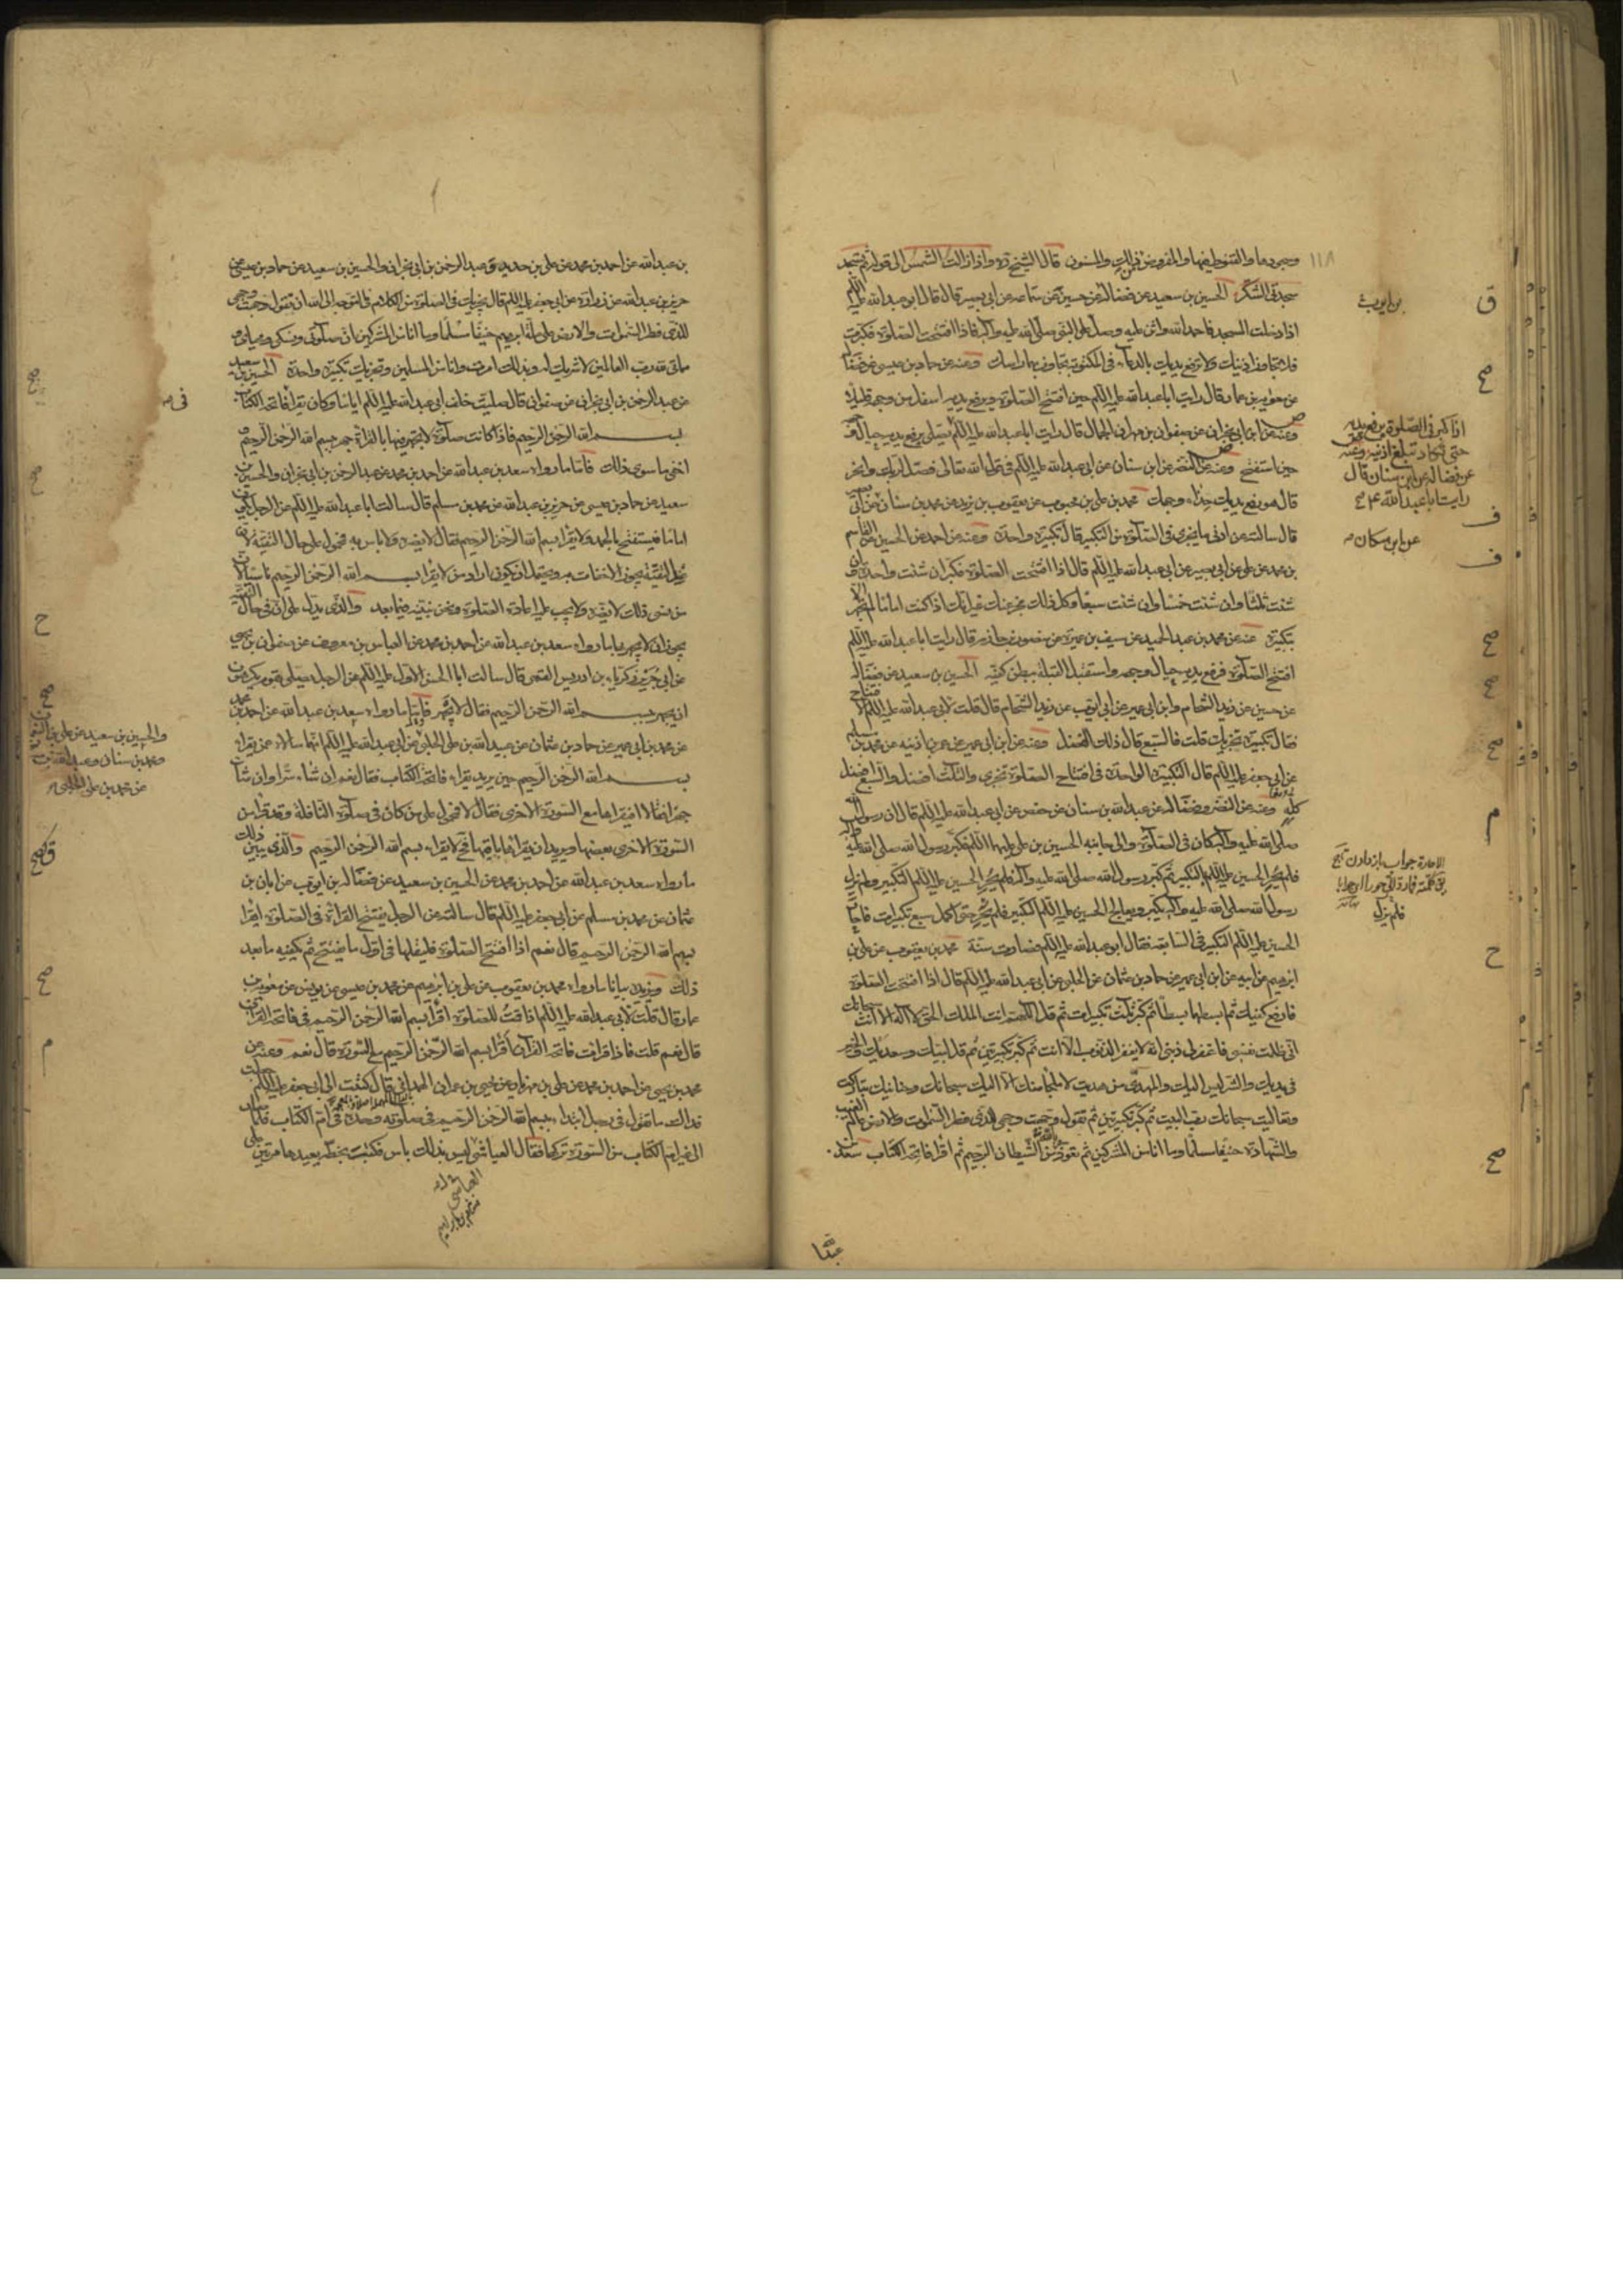 وسجودها والقنوت فيها والمفروض من ذلك والمسنون قال الشيخ ره واذا زالت الشمس الى قوله ثم تسجد
سجدتي الشكر الحسين بن سعيد عن فضالة عن حسين عن سماعه عن ابي بصير قال قال ابو عبد الله عليه السلام
اذا دخلت المسجد فاحمد الله واثن عليه وصل على النبي صلى الله عليه وآله فاذا افتتحت الصلوة فكبرت
فلا تجاوز اذنيك ولا ترفع يديك بالدعاء في المكتوبة تجاوز بهما راسك وعنه عن حماد بن عيسى عن فضالة
عن معوية بن عمار قال رايت ابا عبد الله عليه السلام حين افتتح الصلوة يرفع يديه اسفل من وجهه قليلا
وعنه عن ابن ابي نجران عن صفوان بن مهران الجمال قال رايت ابا عبد الله عليه السلام يصلي يرفع يديه حيال وجهه
حين استفتح وعنه عن النضر عن ابن سنان عن ابي عبد الله عليه السلام في قول الله تعالى فصل لربك وانحر
قال هو رفع يديك حذاء وجهك محمد بن علي بن محبوب عن يعقوب بن يزيد عن محمد بن سنان عن ابي بصير
قال سالته عن ادنى ما يجزي في الصلوة من التكبير قال تكبيرة واحدة وعنه عن احمد عن الحسين عن القاسم
بن محمد عن علي عن ابي بصير عن ابي عبد الله عليه السلام قال اذا افتتحت الصلوة فكبر ان شئت واحدة وان
شئت ثلثا وان شئت خمسا وان شئت سبعا وكل ذلك مجز عنك غير انك اذا كنت اماما لم تجهر الا
بتكبيرة عنه عن محمد بن عبد الحميد عن سيف بن عميرة عن منصور بن حازم قال رايت ابا عبد الله عليه السلام
افتتح الصلوة فرفع يديه حيال وجهه واستقبل القبلة ببطن كفيه الحسين بن سعيد عن فضالة
عن حسين عن زيد الشحام وابن ابي عمير عن ابي ايوب عن زيد الشحام قال قلت لابي عبد الله عليه السلام الافتتاح
فقال تكبيرة تجزيك قلت فالسبع قال ذلك الفضل وعنه عن ابن ابي عمير عن عمر بن اذينه عن محمد بن مسلم
عن ابي جعفر عليه السلام قال التكبيرة الواحدة في افتتاح الصلوة تجزي والثلث افضل والسبع افضل
كله وعنه عن النضر وفضالة عن عبد الله بن سنان عن حفص عن ابي عبد الله عليه السلام قال ان رسول الله
صلى الله عليه وآله كان في الصلوة والى جانبه الحسين بن علي عليهما السلام فكبر رسول الله صلى الله عليه وآله
فلم يحر الحسين عليه السلام بالتكبير ثم كبر رسول الله صلى الله عليه وآله فلم يحر الحسين عليه السلام التكبير ولم يزل
رسول الله صلى الله عليه وآله يكبر ويعالج الحسين عليه السلام التكبير فلم يحر حتى اكمل سبع تكبيرات فاحار
الحسين عليه السلام التكبير في السابعة فقال ابو عبد الله عليه السلام فصارت سنة محمد بن يعقوب عن علي بن
ابرهيم عن ابيه عن ابن ابي عمير عن حماد بن عثمان عن الحلبي عن ابي عبد الله عليه السلام قال اذا افتتحت الصلوة
فارفع كفيك ثم ابسطهما بسطا ثم كبر ثلث تكبيرات ثم قل اللهم انت الملك الحق لا اله الا انت سبحانك
اني ظلمت نفسي فاغفر لي ذنبي انه لا يغفر الذنوب الا انت ثم كبر تكبيرتين ثم قل لبيك وسعديك والخير
في يديك والشر ليس اليك والمهدي من هديت لا ملجأ منك الا اليك سبحانك وحنانيك تباركت
وتعاليت سبحانك رب البيت ثم كبر تكبيرتين ثم تقول وجهت وجهي للذي فطر السموات والارض عالم الغيب
والشهادة حنيفا مسلما وما انا من المشركين ثم تعوذ من الشيطان الرجيم ثم اقرا فاتحة الكتاب سعد
بن ايوب
اذا كبر في الصلوة يرفع يديه
حتى يكاد تبلغ اذنيه وعنه
عن فضالة عن ابن سنان قال
رايت ابا عبد الله ع
عن ابن مسكان
فلم يزل
بن عبد الله عن احمد بن محمد عن علي بن حديد وعبد الرحمن بن ابي نجران والحسين بن سعيد عن حماد بن عيسى عن
حريز بن عبد الله عن زرارة عن ابي جعفر عليه السلام قال يجزيك في الصلوة من الكلام في التوجه الى الله ان تقول وجهت وجهي
للذي فطر السموات والارض على ملة ابرهيم حنيفا مسلما وما انا من المشركين ان صلوتي ونسكي ومحياي و
مماتي لله رب العالمين لا شريك له وبذلك امرت وانا من المسلمين وتجزيك تكبيرة واحدة الحسين بن سعيد
عن عبد الرحمن بن ابي نجران عن صفوان قال صليت خلف ابي عبد الله عليه السلام اياما وكان يقرا فاتحة الكتاب
بسم الله الرحمن الرحيم فاذا كانت صلوة لا يجهر فيها بالقراءة جهر بسم الله الرحمن الرحيم و
اخفى ما سوى ذلك فاما ما رواه سعد بن عبد الله عن احمد بن محمد عن عبد الرحمن بن ابي نجران والحسين بن
سعيد عن حماد بن عيسى عن حريز بن عبد الله عن محمد بن مسلم قال سالت ابا عبد الله عليه السلام عن الرجل يكون
اماما فيستفتح بالحمد ولا يقرا بسم الله الرحمن الرحيم فقال لا يضره ولا باس به فمحمول على حال التقية لان
من نسي ذلك لا يضره ولا يجب عليه اعادة الصلوة ونحن نبينه فيما بعد والذي يدل على ان في حال التقية
يجوز ان لا يجهر بها ما رواه سعد بن عبد الله عن احمد بن محمد عن العباس بن معروف عن صفوان بن يحيى
عن ابي جرير زكريا بن ادريس القمي قال سالت ابا الحسن الاول عليه السلام عن الرجل يصلي بقوم يكرهون
ان يجهر ببسم الله الرحمن الرحيم فقال لا يجهر فاما ما رواه سعد بن عبد الله عن احمد بن محمد
عن محمد بن ابي عمير عن حماد بن عثمان عن عبيد الله بن علي الحلبي عن ابي عبد الله عليه السلام انهما سالاه عمن يقرا
بسم الله الرحمن الرحيم حين يريد يقراء فاتحة الكتاب فقال نعم ان شاء سرا وان شاء
جهرا فقالا افيقراها مع السورة الاخرى فقال لا فمحمول على من كان في صلوة النافلة وقد قرا من
السورة الاخرى بعضها ويريد ان يقرا باقيها فح لا يقراء بسم الله الرحمن الرحيم والذي يبين ذلك
ما رواه سعد بن عبد الله عن احمد بن محمد عن الحسين بن سعيد عن فضالة بن ايوب عن ابان بن
عثمان عن محمد بن مسلم عن ابي جعفر عليه السلام قال سالته عن الرجل يفتتح القراءة في الصلوة ايقرا
بسم الله الرحمن الرحيم قال نعم اذا افتتح الصلوة فليقلها في اول ما يفتتح ثم يكفيه ما بعد
ذلك ويزيده بيانا ما رواه محمد بن يعقوب عن علي بن ابرهيم عن محمد بن عيسى عن يونس عن معوية بن
عمار قال قلت لابي عبد الله عليه السلام اذا قمت للصلوة اقرا بسم الله الرحمن الرحيم في فاتحة القران
قال نعم قلت فاذا قرات فاتحة القران أقرا بسم الله الرحمن الرحيم مع السورة قال نعم وعنه عن
محمد بن يحيى عن احمد بن محمد عن علي بن مهزيار عن يحيى بن عمران الهمداني قال كتبت الى ابي جعفر عليه السلام جعلت
فداك ما تقول في رجل ابتداء ببسم الله الرحمن الرحيم في صلوته وحده في ام الكتاب فلما صار
الى غير ام الكتاب من السورة تركها فقال العياشي ليس بذلك باس فكتب بخطه يعيدها مرتين على
والحسين بن سعيد عن علي بن النعمان
ومحمد بن سنان وعبد الله بن مسكان
عن محمد بن علي الحلبي